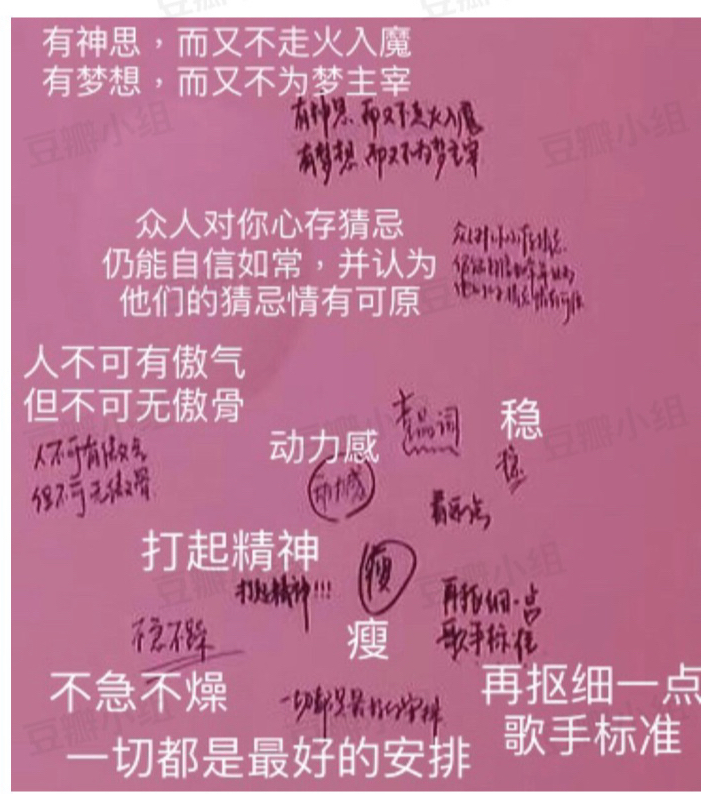 有神思,而又不走火入魔
有梦想,而又不为梦主宰
有神思,而又不走火入魔
有梦想,而又不为梦主宰
众人对你心存猜忌
仍能自信如常,并认为
他们的猜忌情有可原
众人对你心存猜忌.
仍能自信如常,并认为
他们的猜忌情有可原
人不可有傲气
但不可无傲骨
人不可有傲气
但不可无傲骨.
动力感
动力感
稳
稳
打起精神
打起精神!!!
瘦
瘦
再抠细一点
歌手标准
不急不燥
不急不躁
再抠细一点
歌手标准
一切都是最好的安排
一切都是最好的安排
豆瓣小组
豆瓣小组
豆瓣小组
豆瓣小组
豆瓣小组